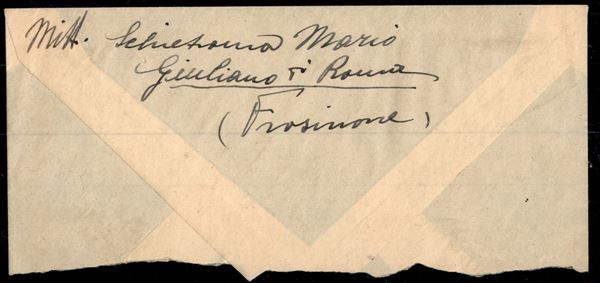 Mitt. Schietroma Mario
Giuliano di Roma
(Frosinone)